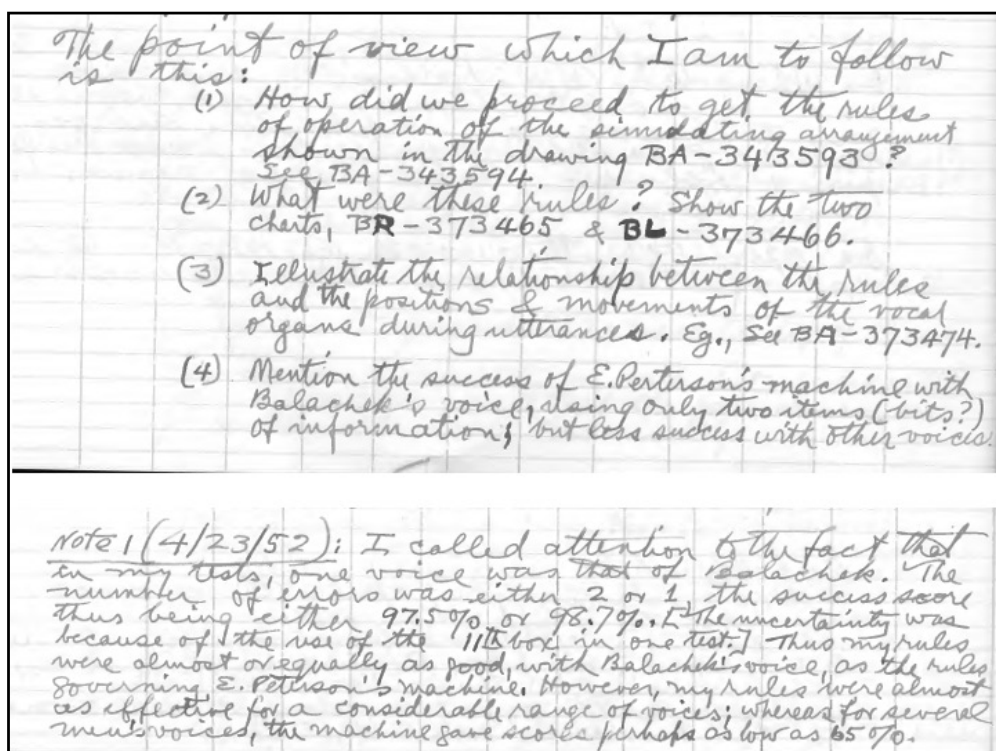 The point of view which I am to follow
is this:
(1) How did we proceed to get the rules
of operation of the simulating arrangement
shown in the drawing BA-343593?
See BA-343594
(2) What were these rules? Show the two
charts, BR-373465 & BL-373466.
(3) Illustrate the relationship between the rules
and the positions & movements of the vocal
organs during utterances. Eg., See BA-373474.
(4) Mention the success of E. Perterson's machine with
Balachek's voice, using only two items (bits?)
of information; but less success with other voices.
Note 1 (4/23/52): I called attention to the fact that
in my tests, one voice was that of Balachek. The
number of errors was either 2 or 1, the success score
thus being either 97.5% or 98.7%. [The uncertainty was
because of the use of the 11th box in one test.] Thus my rules
were almost or equally as good, with Balachek's voice, as the rules
governing E. Peterson's machine. However, my rules were almost
as effective for a considerable range of voices; whereas for several
men's voices, the machine gave scores perhaps as low as 65%.